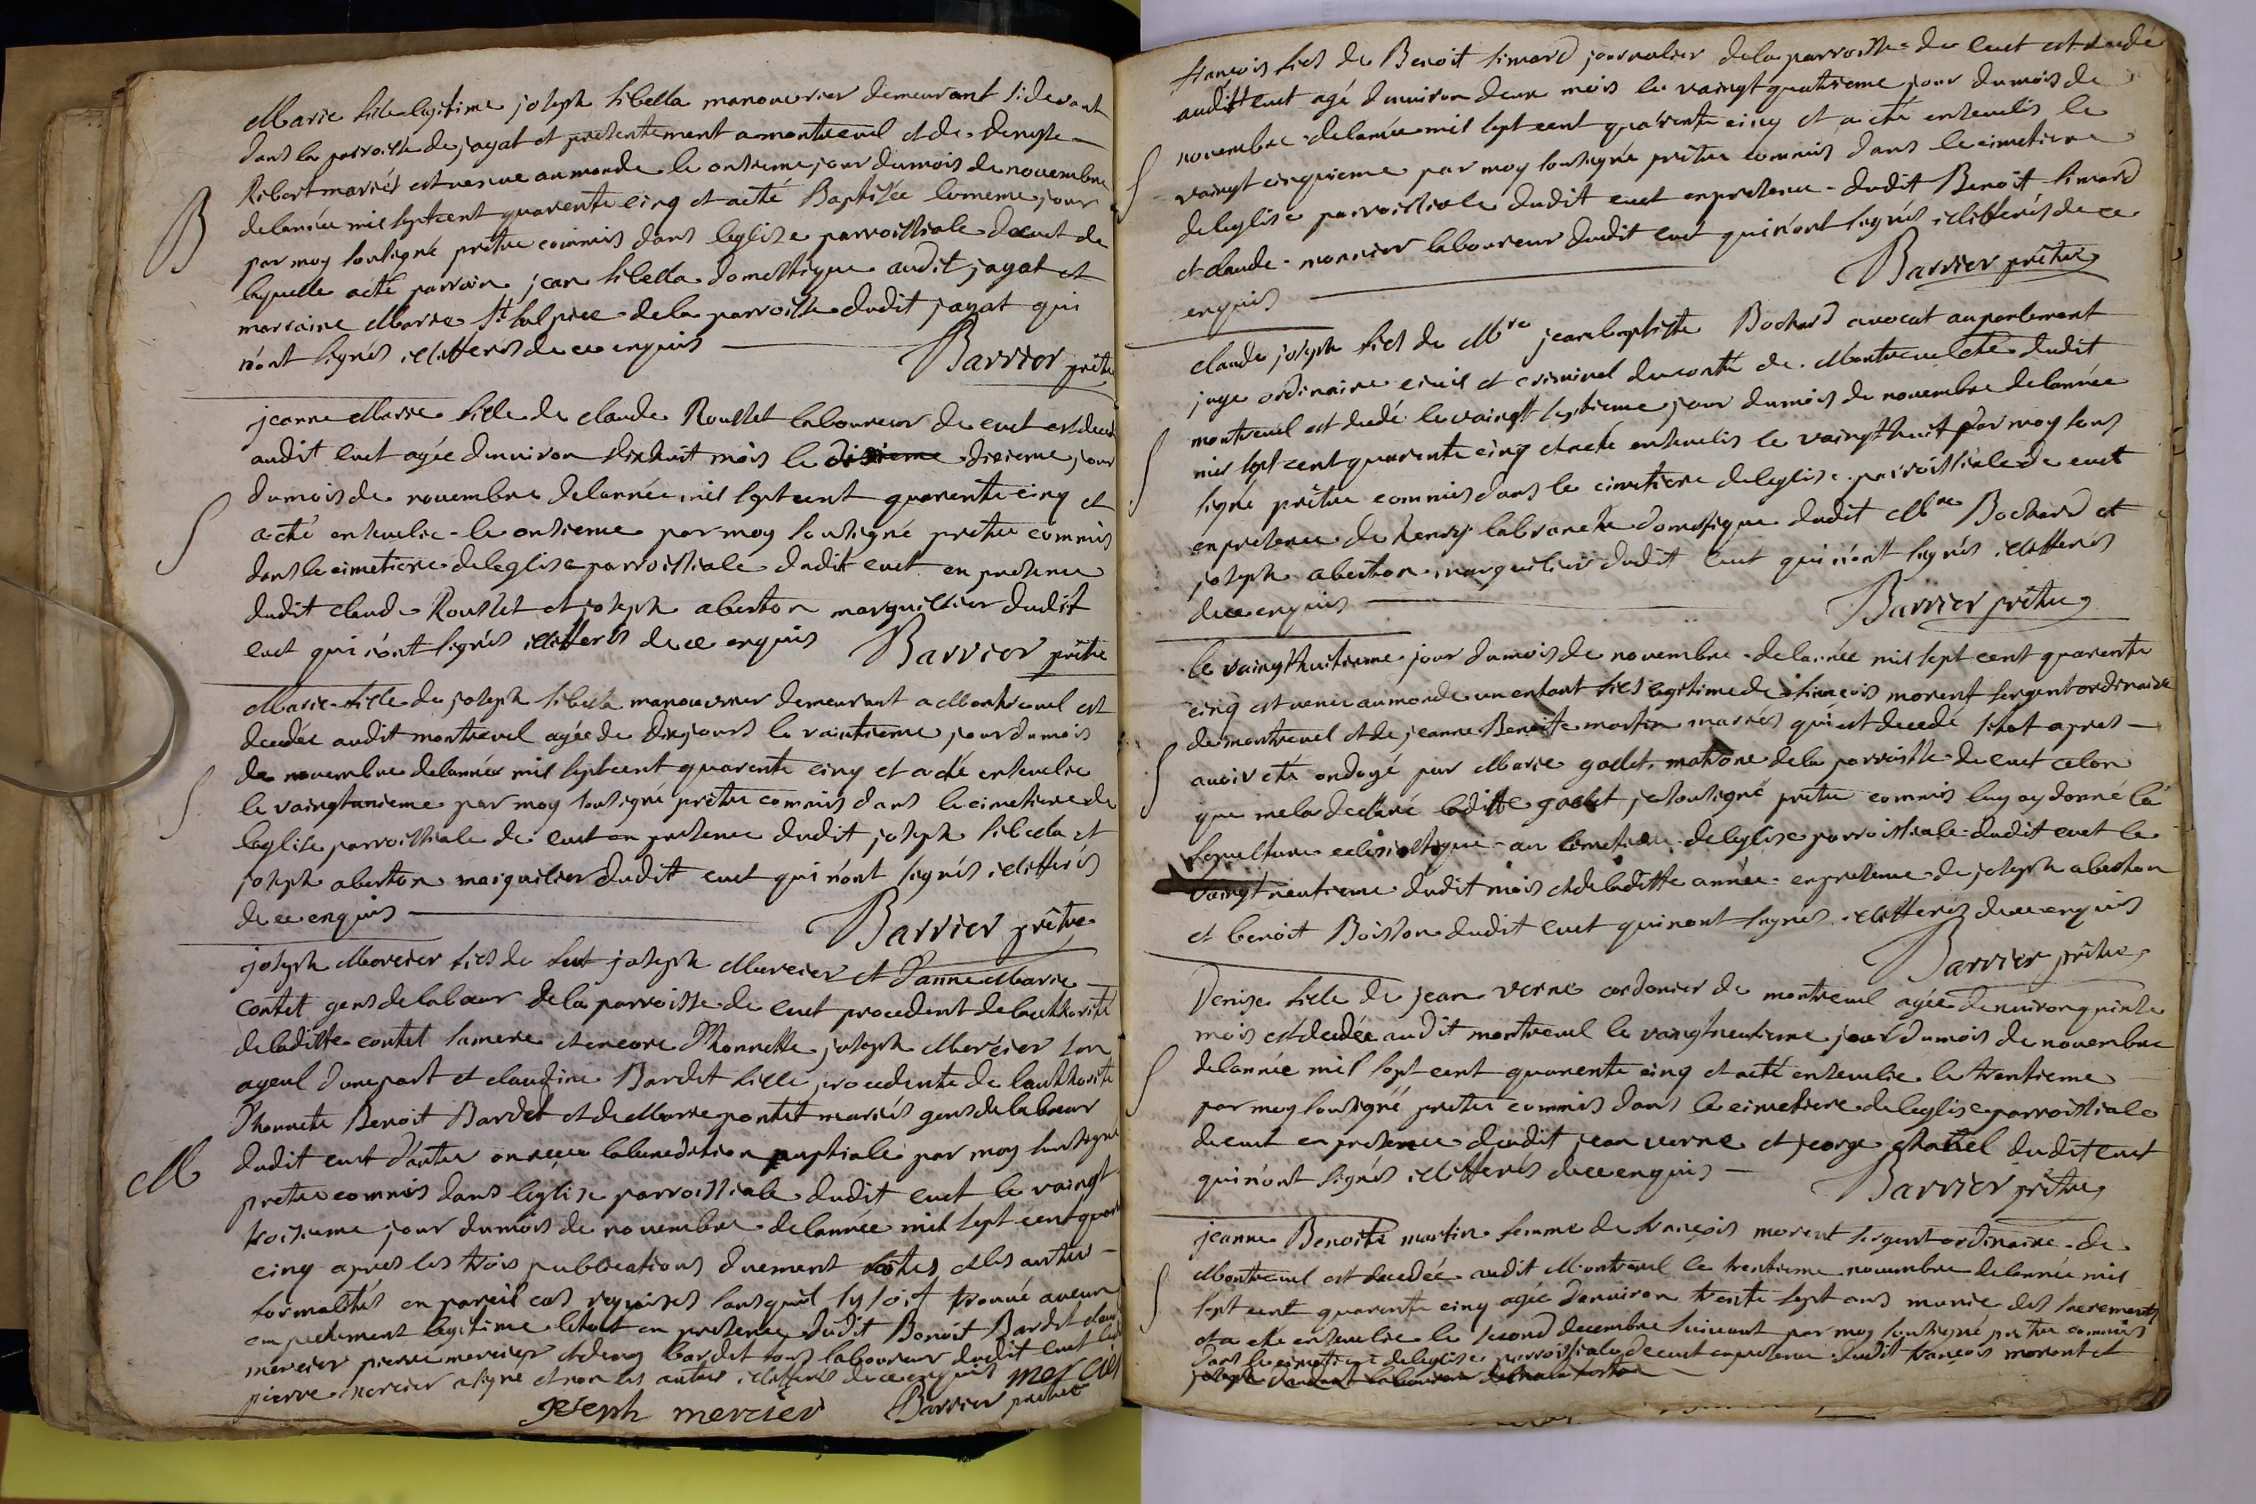 Marie fille legitime joseph sibella manouvrier demeurant sidevant
dans la parroisse de jayat et presentement a montrevel et de denyse
Ribert mariés est venue au monde le onsieme jour du mois de novembre
de lannée mil sept cent quarente cinq et a eté Baptisée le meme jour
par moy soussigné prêtre commis dans leglise parroissiale de cuet de
laquelle a eté parrain jean sibella domestique audit jayat et
marraine Marie St Sulpice de la parroisse dudit jayat qui
n'ont signés illitterés de ce enquis
Barrier prêtre
B
jeanne Marie fille de claude Rousset laboureur de cuet est decedée
audit cuet agée d'environ dixhuit mois le disieme dixieme jour
du mois de novembre de lannée mil sept cent quarente cinq et
a eté ensevelie le onsieme par moy soussigné prêtre commis
dans le cimetiere de leglise parroissiale dudit cuet en presence
dudit claude Rousset et joseph aberton marguillier dudit
cuet qui n'ont signés illitterés de ce enquis Barrier prêtre
S
Marie fille de joseph sibella manouvrier demeurant a Montrevel est
decedée audit montrevel agée de dix jours le vaintieme jour du mois
de novembre de lannée mil sept cent quarente cinq et a eté ensevelie
le vaingtunieme par moy soussigné prêtre commis dans le cimetiere de
leglise parroissiale de cuet en presence dudit joseph sibella et
joseph aberton marguillier dudit cuet qui n'ont signés illitterés
de ce enquis
Barrier prêtre
S
joseph Mercier fils de feu joseph Mercier et d'anne Marie
contet gens de labeur de la parroisse de cuet procedent de lauthorité
de laditte contet sa mere et encore d'honnette joseph Mercier son
ayeul dune part et claudine Bardet fille procedente de lauthorité
d'honnete Benoit Bardet et de Marie pontet mariés gens de labeur
dudit cuet d'autre on reçu la benediction nuptiale par moy soussigné
M
pretre commis dans l'eglise parroissiale dudit cuet le vaingt
troisieme jour du mois de novembre de lannée mil sept cent quarente
cinq apres les trois publications duement faites et les autres
formalités en pareil cas requises sans quil sy soit trouvé aucun
empechement legitime le tout en presence dudit Benoit Bardet
mercier pierre mercier et bardet tous laboureur dudit cuet
pierre mercier a signé et non les autres illitterés de ce enquis mercier
joseph mercier Barrier prêtre
françois fils de Benoit simard journalier de la parroisse de cuet est decedé
audit cuet agé d'environ deux mois le vaingt quatrieme jour du mois de
novembre de lannée mil sept cent quarente cinq et a eté ensevelis le
vaingt cinquieme par moy soussigné prêtre commis dans le cimetiere
S
de leglise parroissiale dudit cuet en presence dudit Benoit simard
et claude monnier laboureur dudit cuet qui n'ont signés illitterés de ce
enquis
Barrier prêtre
claude joseph fils de Mre jean baptiste Bochard avocat au parlement
juge ordinaire civil et criminel du comté de Montrevel dudit
montrevel est decedé le vaingt septieme jour du mois de novembre de lannée
mil sept cent quarente cinq et a eté ensevelis le vaingthuit par moy sous
S
signé prêtre commis dans le cimetiere de leglise parroissiale de cuet
en presence de henry labranche domestique dudit Mre Bochard et
joseph aberton marguillier dudit cuet qui n'ont signés illitterés
de ce enquis
Barrier prêtre
le vaingthuitieme jour du mois de novembre de lannée mil sept cent quarente
cinq est venu au monde un enfant fils legitime de françois morent sergent ordinaire
de montrevel et de jeanne Benoite martin mariés qui est decedé sitot apres
avoir eté ondoyé par Marie gollet matrone de la parroisse de cuet celon
que me la declaré laditte gollet je soussigné pretre commis luy ay donné la
S
sepulture eclesiastique au cimetiere de leglise parroissiale dudit cuet le
vaingt neufvieme dudit mois et de laditte année en presence de joseph aberton
et benoit Boisson dudit cuet qui n'ont signés illitterés de ce enquis
Barrier prêtre
Denise fille de jean verne cordonier de montrevel agée d'environ quinze
mois est decedée audit montrevel le vaingtneufieme jour du mois de novembre
de lannée mil sept cent quarente cinq et a eté ensevelie le trentieme
S
par moy soussigné pretre commis dans le cimetiere de leglise parroissiale
de cuet en presence dudit jean verne et jeorge chatel dudit cuet
qui n'ont signés illitterés de ce enquis
Barrier prêtre
jeanne Benoite martin femme de françois morent sergent ordinaire de
Montrevel est decedée audit Montrevel le trentieme novembre de lannée mil
S
sept cent quarente cinq agée d'environ trente sept ans munie des sacrements
et a eté ensevelie le second decembre suivant par moy soussigné pretre commis
dans le cimetiere de leglise parroissiale de cuet en presence dudit françois morent et
joseph laboureur